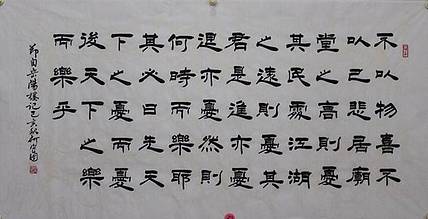 不以物喜不
以己悲居廟
堂之高則憂
其民處江湖
之遠則憂其
君是進亦憂
退亦憂然則
何時而樂耶
其必曰先天
下之憂而憂
後天下之樂
而樂乎
節自岳陽樓記己亥秋